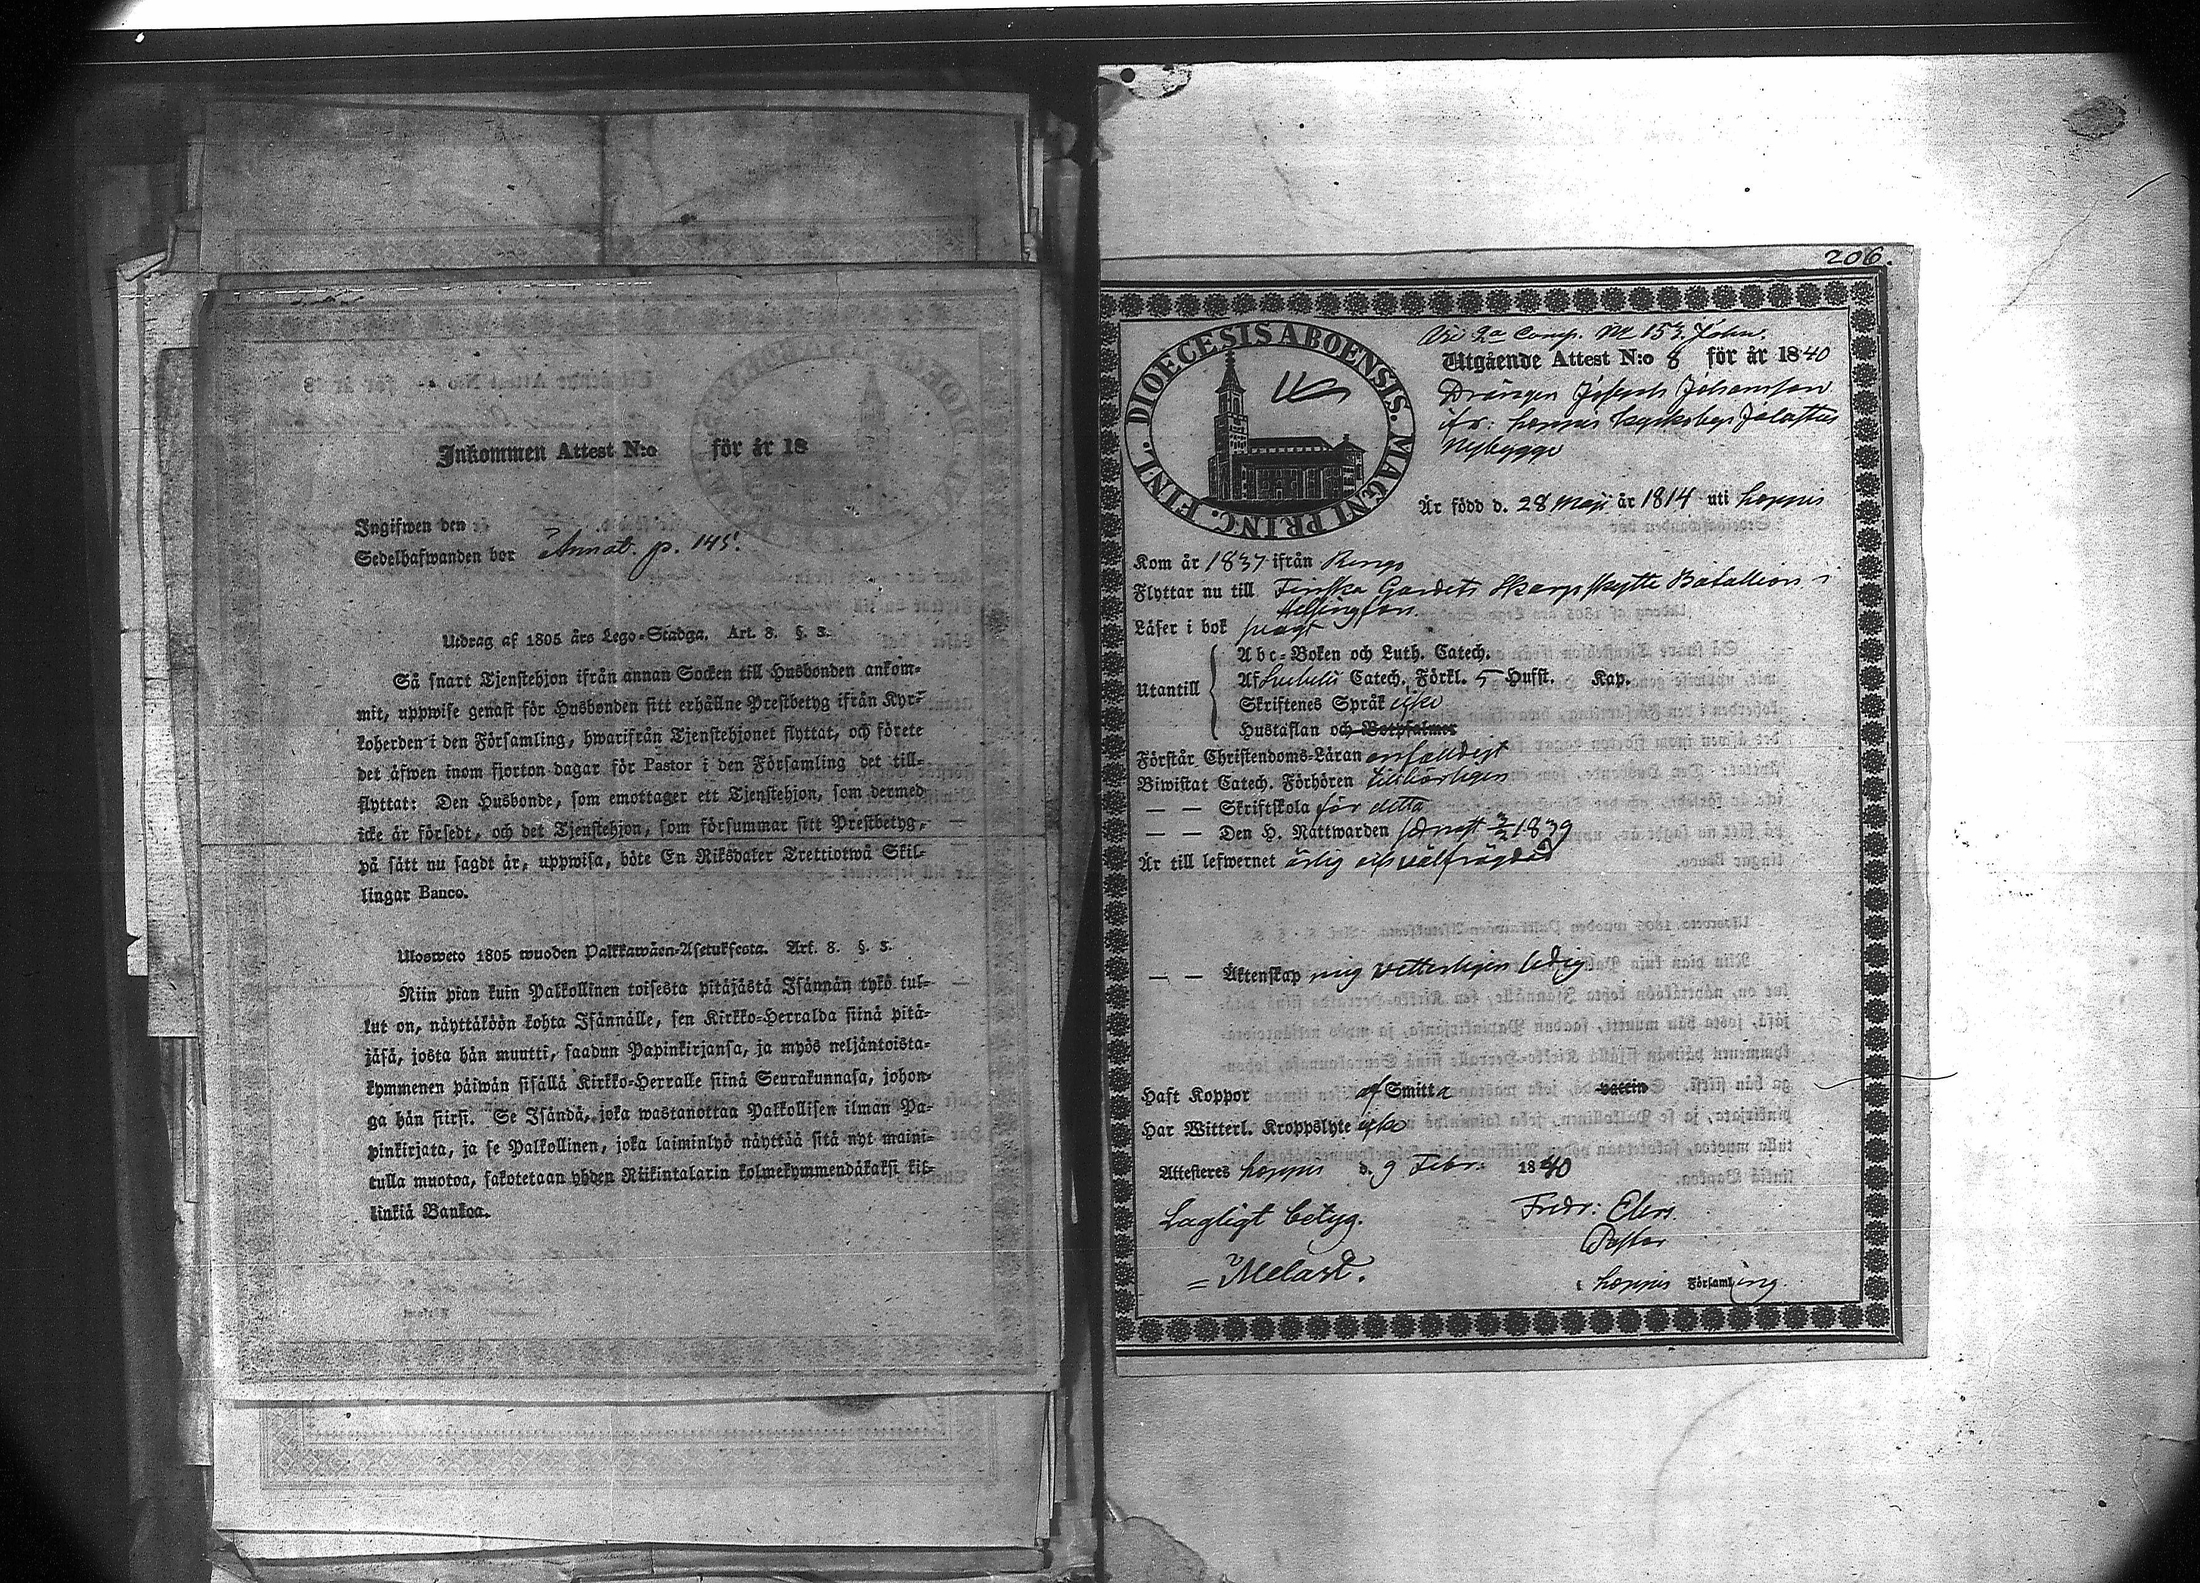 Inkommen Attest N:o för år 18
Ingifwen den
Sedelhafwanden bor Annot. p. 145.
Utdrag af 1805 års Lego-Stadga. Art. 8. §. 3.
Så snart Tjenstehjon ifrån annan Socken till Husbonden ankom-
mit, uppwise genast för Husbonden sitt erhållne Prestbetyg ifrån Kyr-
koherden i den Församling, hwarifrån Tjenstehjonet flyttat, och förete
det äfwen inom fjorton dagar för Pastor i den Församling det till-
flyttat: Den Husbonde, som emottager ett Tjenstehjon, som dermed
icke är försedt, och det Tjenstehjon, som försummar sitt Prestbetyg,
på sätt nu sagdt är, uppwisa, böte En Riksdaler Trettiotwå Skil-
lingar Banco.
Ulosweto 1805 wuoden Palkkawäen-Asetuksesta. Art. 8. §. 3.
Niin pian kuin Palkollinen toisesta pitäjästä Isännän tykö tul-
lut on, näyttäköön kohta Isännälle, sen Kirkko-Herralda siinä pitä-
jäsä, josta hän muutti, saadun Papinkirjansa, ja myös neljäntoista-
kymmenen päiwän sisällä Kirkko-Herralle siinä Seurakunnasa, johon-
ga hän siirsi. Se Isändä, joka wastanottaa Palkollisen ilman Pa-
pinkirjata, ja se Palkollinen, joka laiminlyö näyttää sitä nyt maini-
tulla muotoa, sakotetaan yhden Riikintalarin kolmekymmendäkaksi kil-
linkiä Bankoa.
206.
2a Comp. No 153 John.
DIOECESIS ABOENSIS. MAGNI PRINC. FINL.
Utgående Attest N:o 8 för år 1840
Drängen Joseph Johansson
ifr: Loppis Kyrkoby
Nybygge
Är född d. 28 Maji år 1814 uti Loppis
Kom år 1837 ifrån Rengo
Flyttar nu till Finska Gardets Skarpskytte Bataillion i
Helsingfors
Läser i bok svagt
Abc-Boken och Luth. Catech.
Utantill Af Svebelii Catech. Förkl. 5 Hufst. Kap.
Skriftenes Språk icke
Hustaflan och Botpsalmer
Förstår Christendoms-Läran enfalldigt
Biwistat Catech. Förhören tillbörligen
— — Skriftskola för detta
— — Den H. Nattwarden sednast 3/2 1839
Är till lefwernet ärlig och välfrägdad
— — Äktenskap mig vetterligen ledig
Haft Koppor af Smitta vaccin
Har Witterl. Kroppslyte icke
Attesteres Loppis d. 9 Febr: 1840
Lagligt betyg. Fredr: Elers
Pastor
= Melart.
i Loppis Församling.